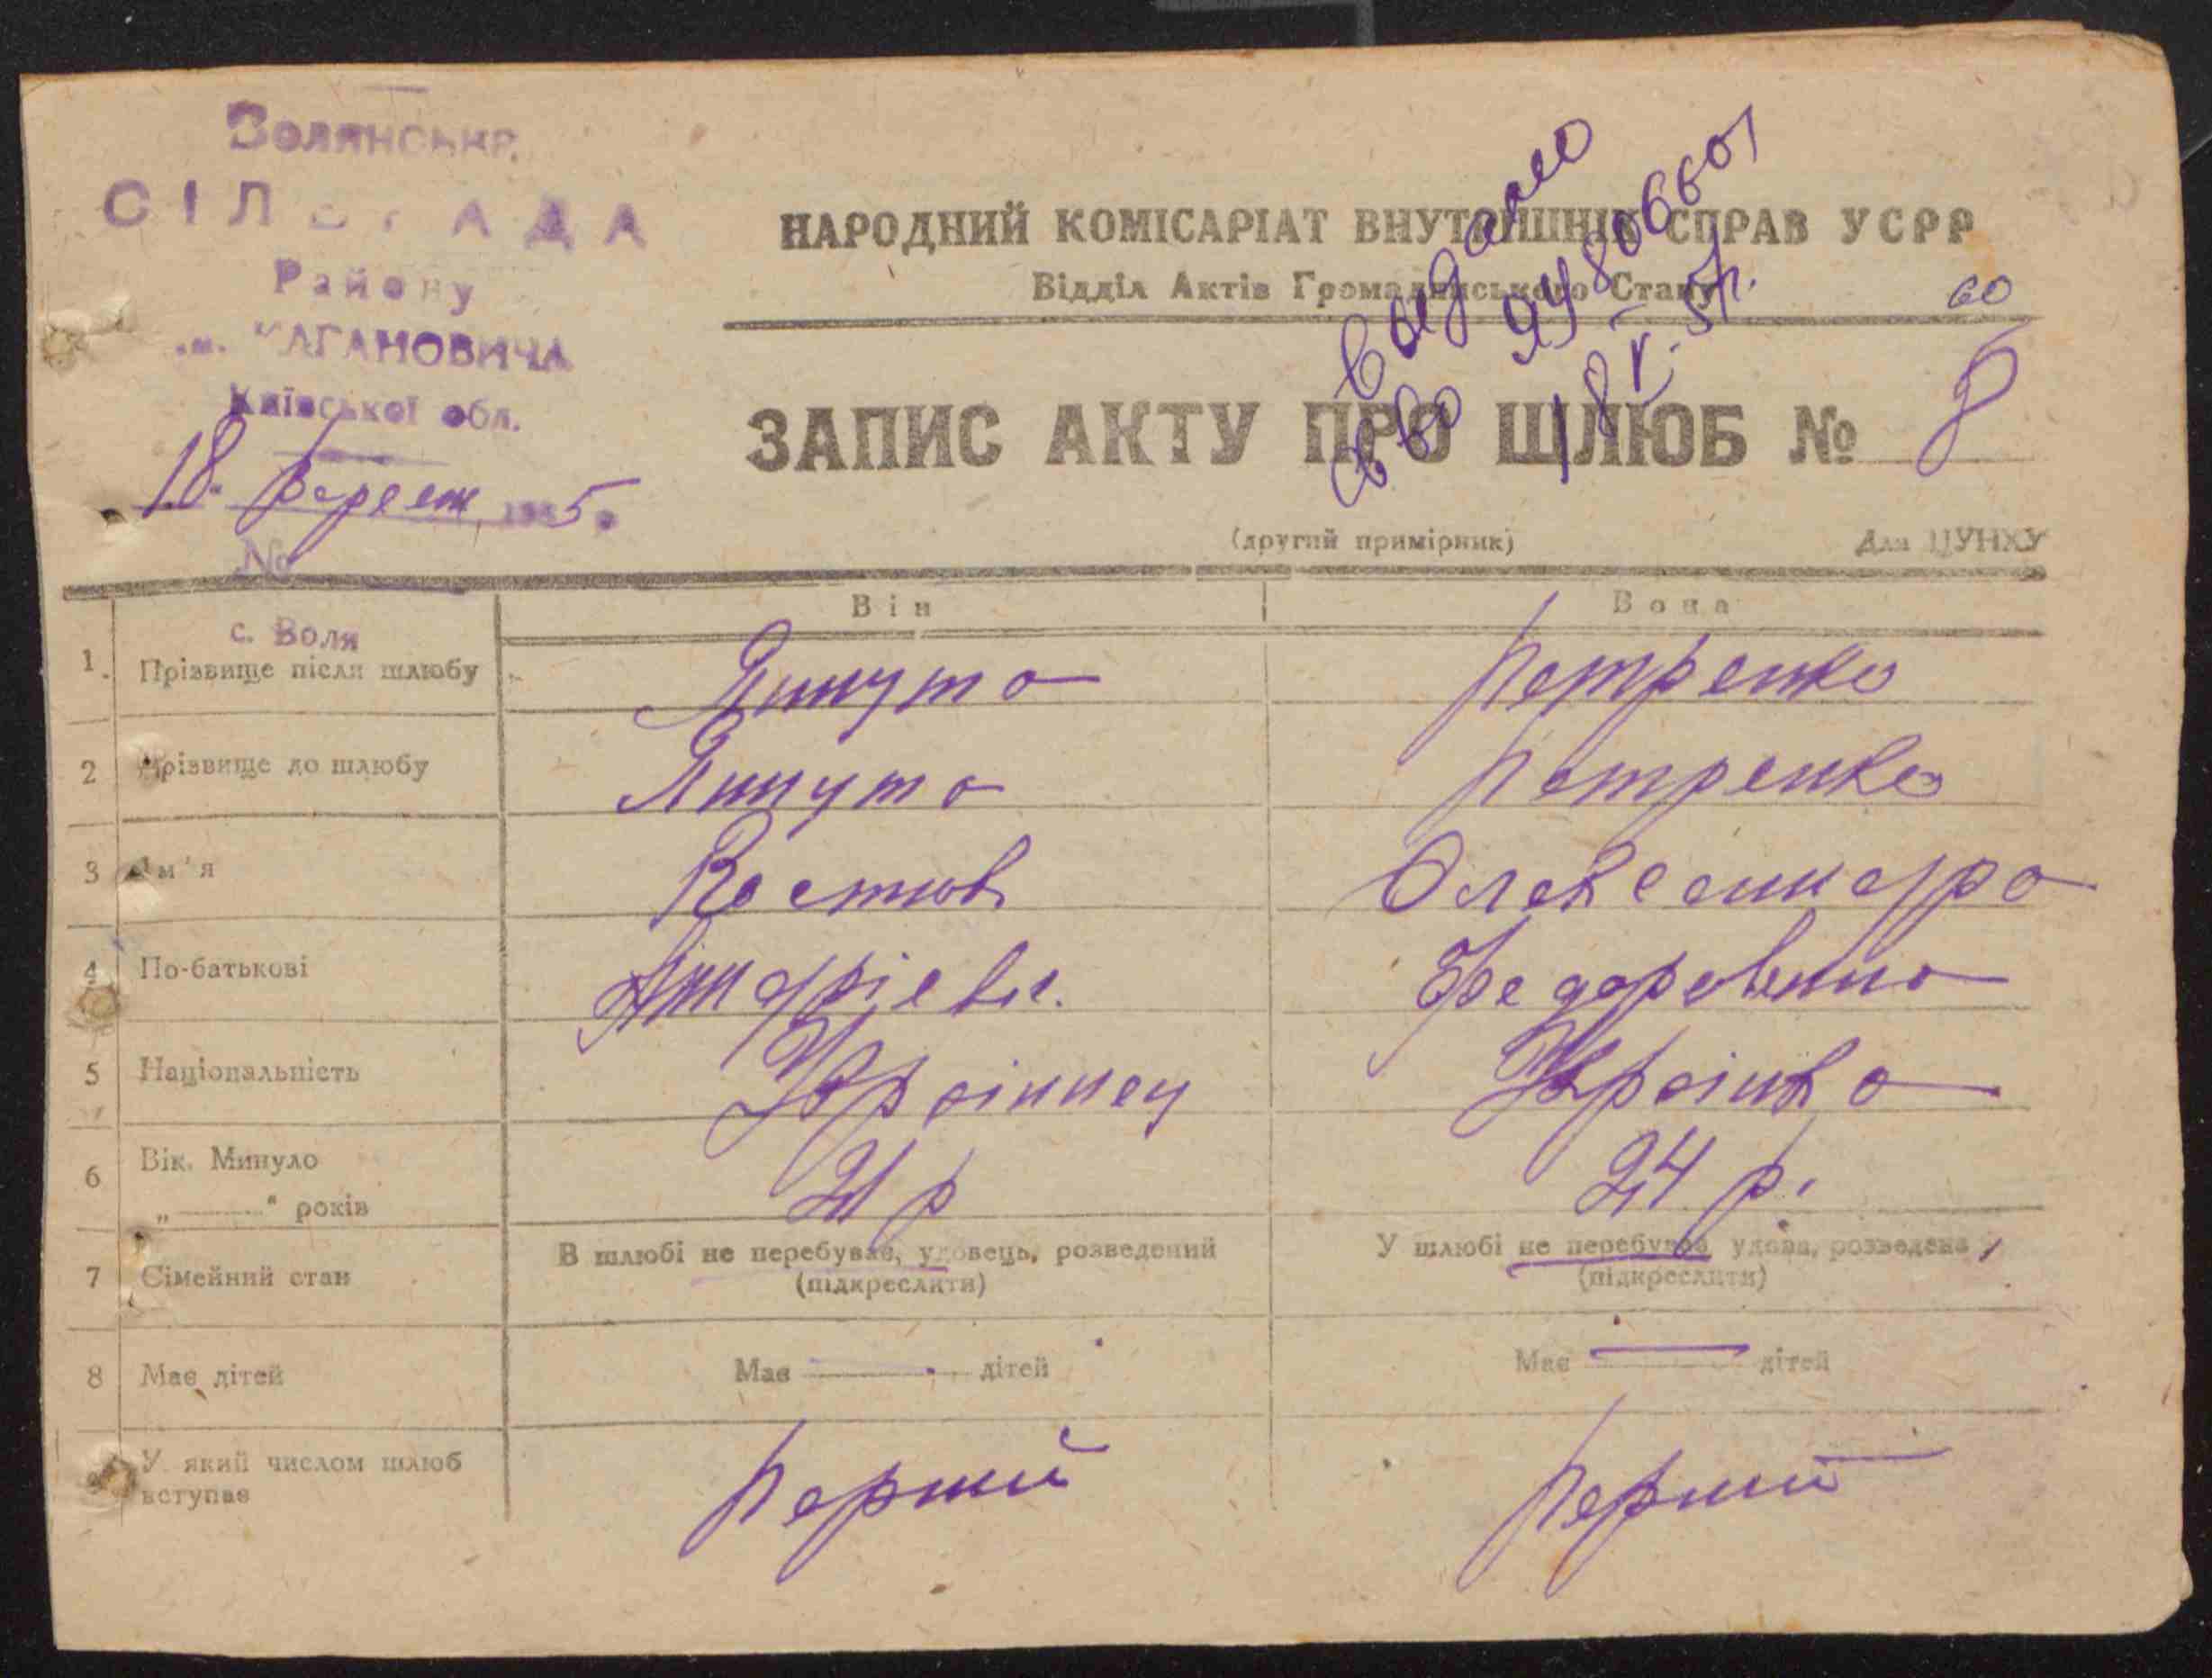 Волянська
СІЛЬРАДА
Району
ім. КАГАНОВИЧА
Київської обл.
18. березня 1935 р.
№
НАРОДНИЙ КОМІСАРІАТ ВНУТРІШНІХ СПРАВ УСРР
Відділ Актів Громадянського Стану
60
Выдано
св во ЯЧ 8066601
18 V. 57 г.
ЗАПИС АКТУ ПРО ШЛЮБ № 8
(другий примірник) Для ЦУНХУ
Він Вона
с. Воля
1. Прізвище після шлюбу Липута Петренко
2 Прізвище до шлюбу Липута Петренко
3 Ім'я Костюк Олександра
4 По-батькові Андрієви. Федоровына
5 Національність Українец Українка
6 Вік. Минуло
„ — " років 21 р 24 р.
7 Сімейний стан В шлюбі не перебуває, удовець, розведений У шлюбі не перебуває удова, розведена
(підкреслити) (підкреслити)
8 Має дітей Має — дітей Має — дітей
9 У який числом шлюб
вступає Перший Перший